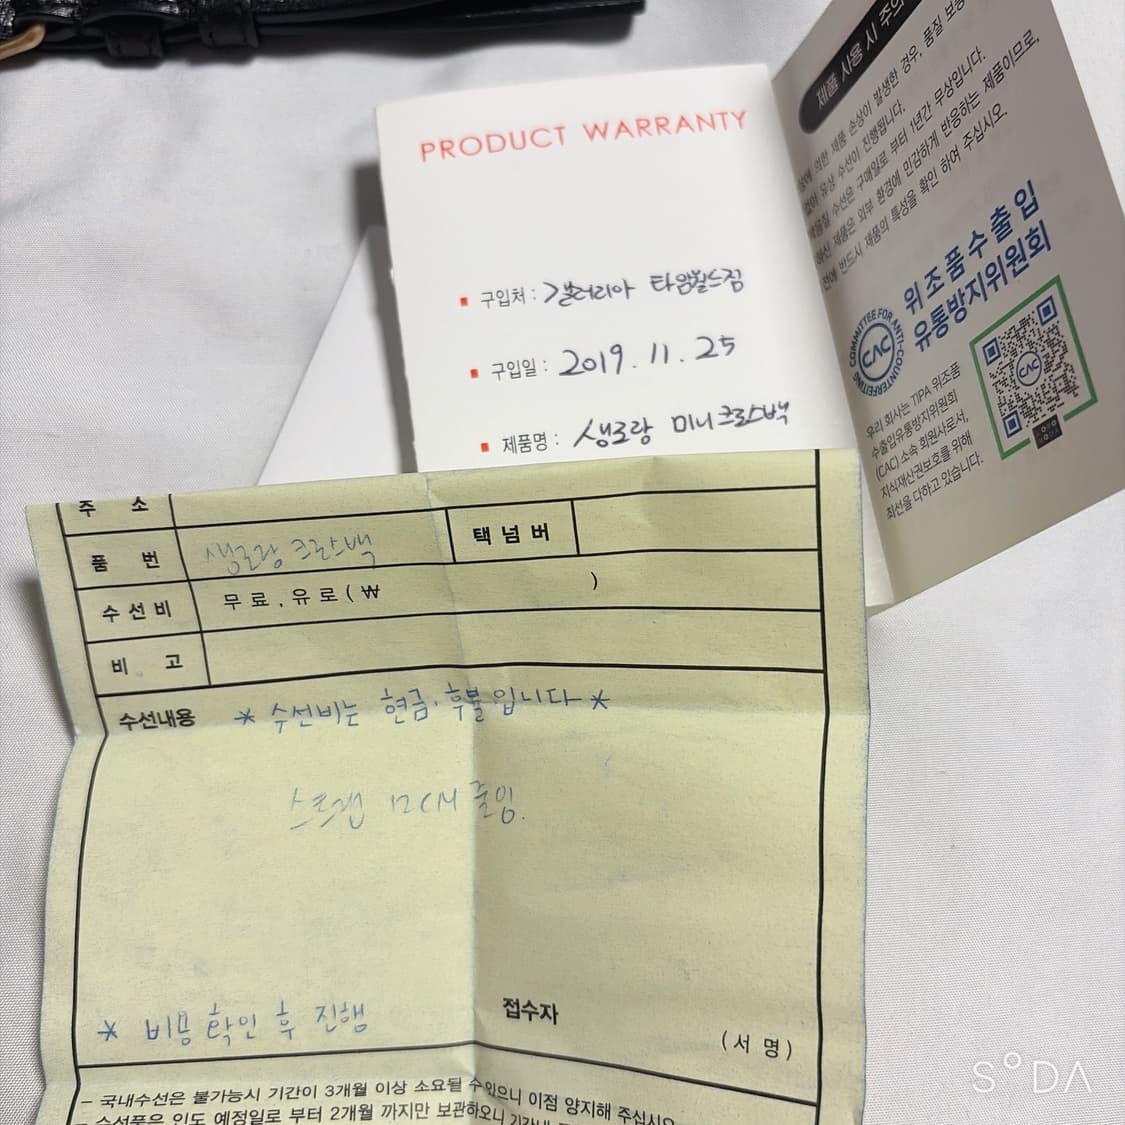 PRODUCT WARRANTY
구입처 : 갤러리아 타임월드점
구입일 : 2019. 11. 25
제품명 : 생로랑 미니크로스백
제품 사용 시 주의
의한 제품 손상이 발생한 경우, 품질 보증
유상 수선이 진행됩니다.
수선은 구매일로 부터 1년간 무상입니다.
제품은 외부 환경에 민감하게 반응하는 제품이므로,
반드시 제품의 특성을 확인 하여 주십시오.
위조품수출입
유통방지위원회
COMMITTEE FOR ANTI-COUNTERFEITING
CAC
CAC
우리 회사는 TIPA 위조품
수출입유통방지위원회
(CAC) 소속 회원사로서,
지식재산권보호를 위해
최선을 다하고 있습니다.
주 소
품 번 생로랑 크로스백 택넘버
수선비 무료 , 유로 (₩ )
비 고
수선내용 * 수선비는 현금·후불입니다 *
스트랩 12CM 줄임.
* 비용 확인 후 진행
접수자
(서 명)
- 국내수선은 불가능시 기간이 3개월 이상 소요될 수있으니 이점 양지해 주십시오
- 수선품은 인도 예정일로 부터 2개월 까지만 보관하오니
SODA